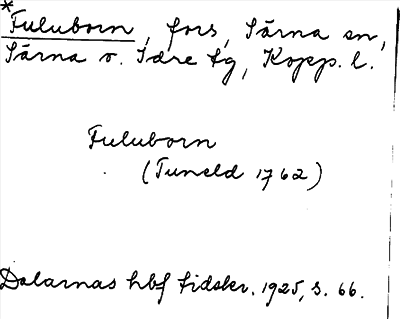 *Fuluborn, fors, Särna sn,
Särna o. Idre tg, Kopp. l.
Fuluborn
(Tuneld 1762)
Dalarnas hbf tidskr. 1925, s. 66.